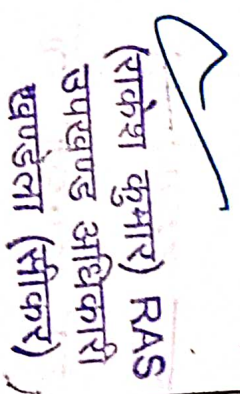 (राकेश कुमार) RAS
उपखण्ड अधिकारी
खण्डेला (सीकर)